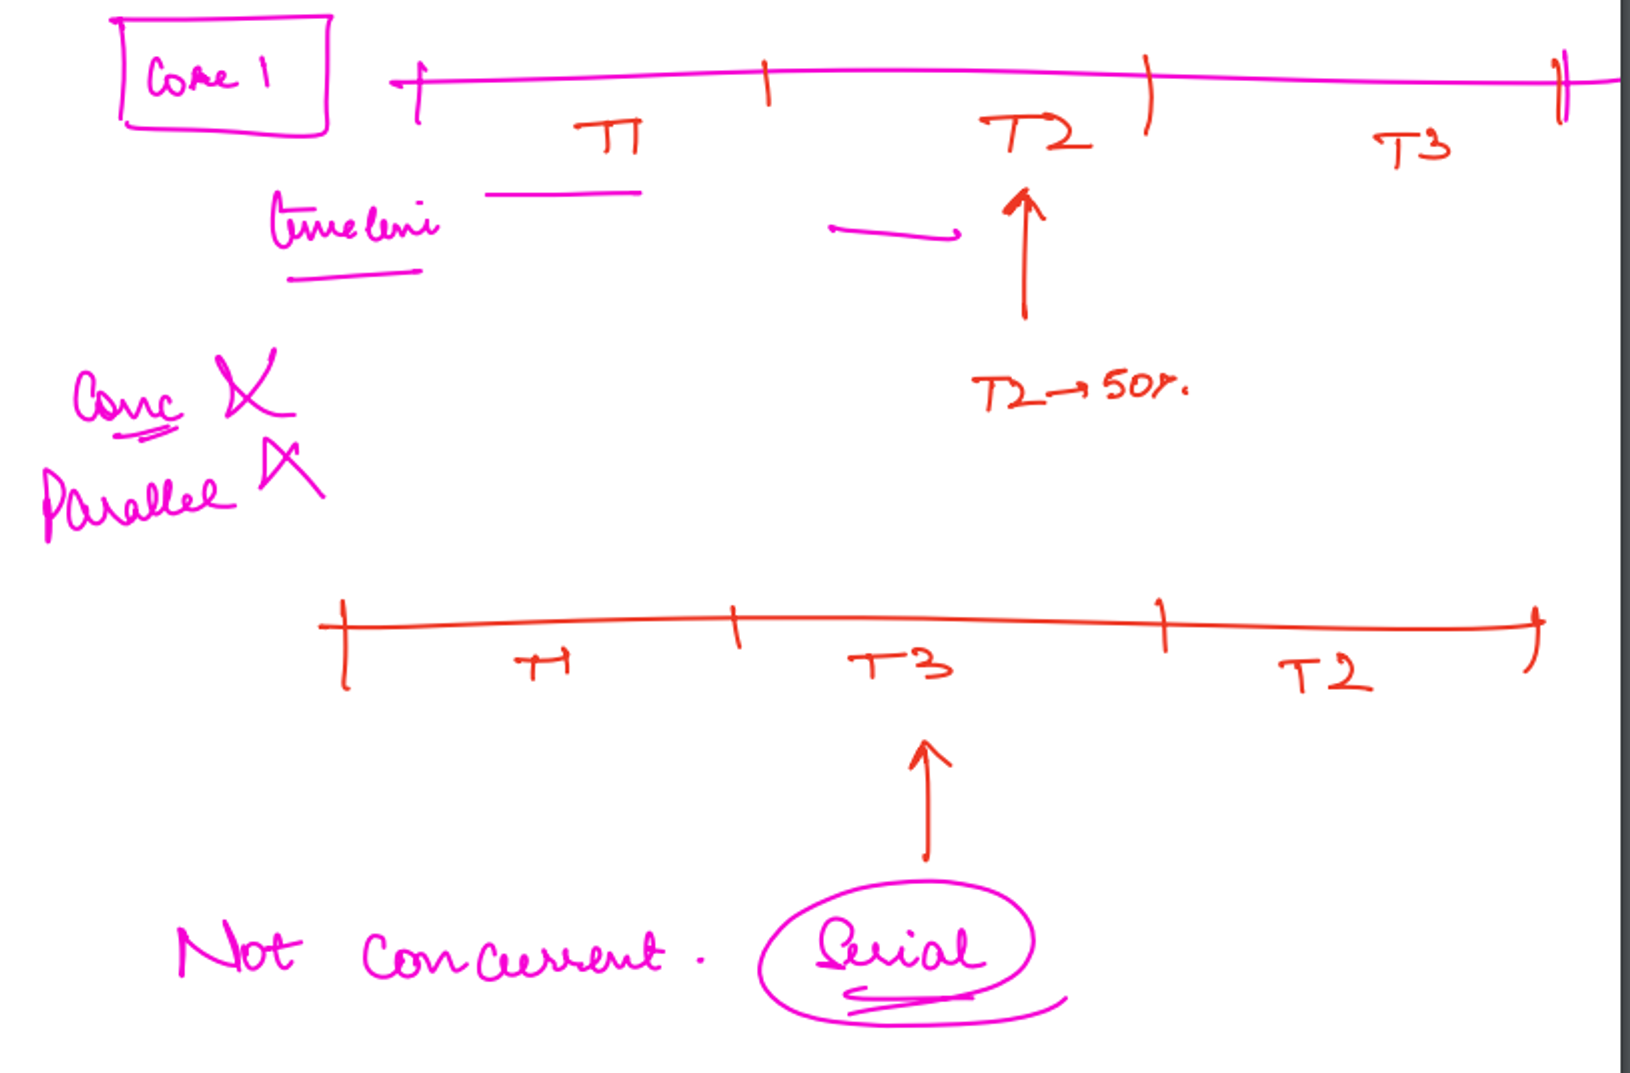 Core 1
T1 T2 T3
timeline
T2 → 50%.
Conc X
Parallel X
T1 T3 T2
Not concurrent. Serial